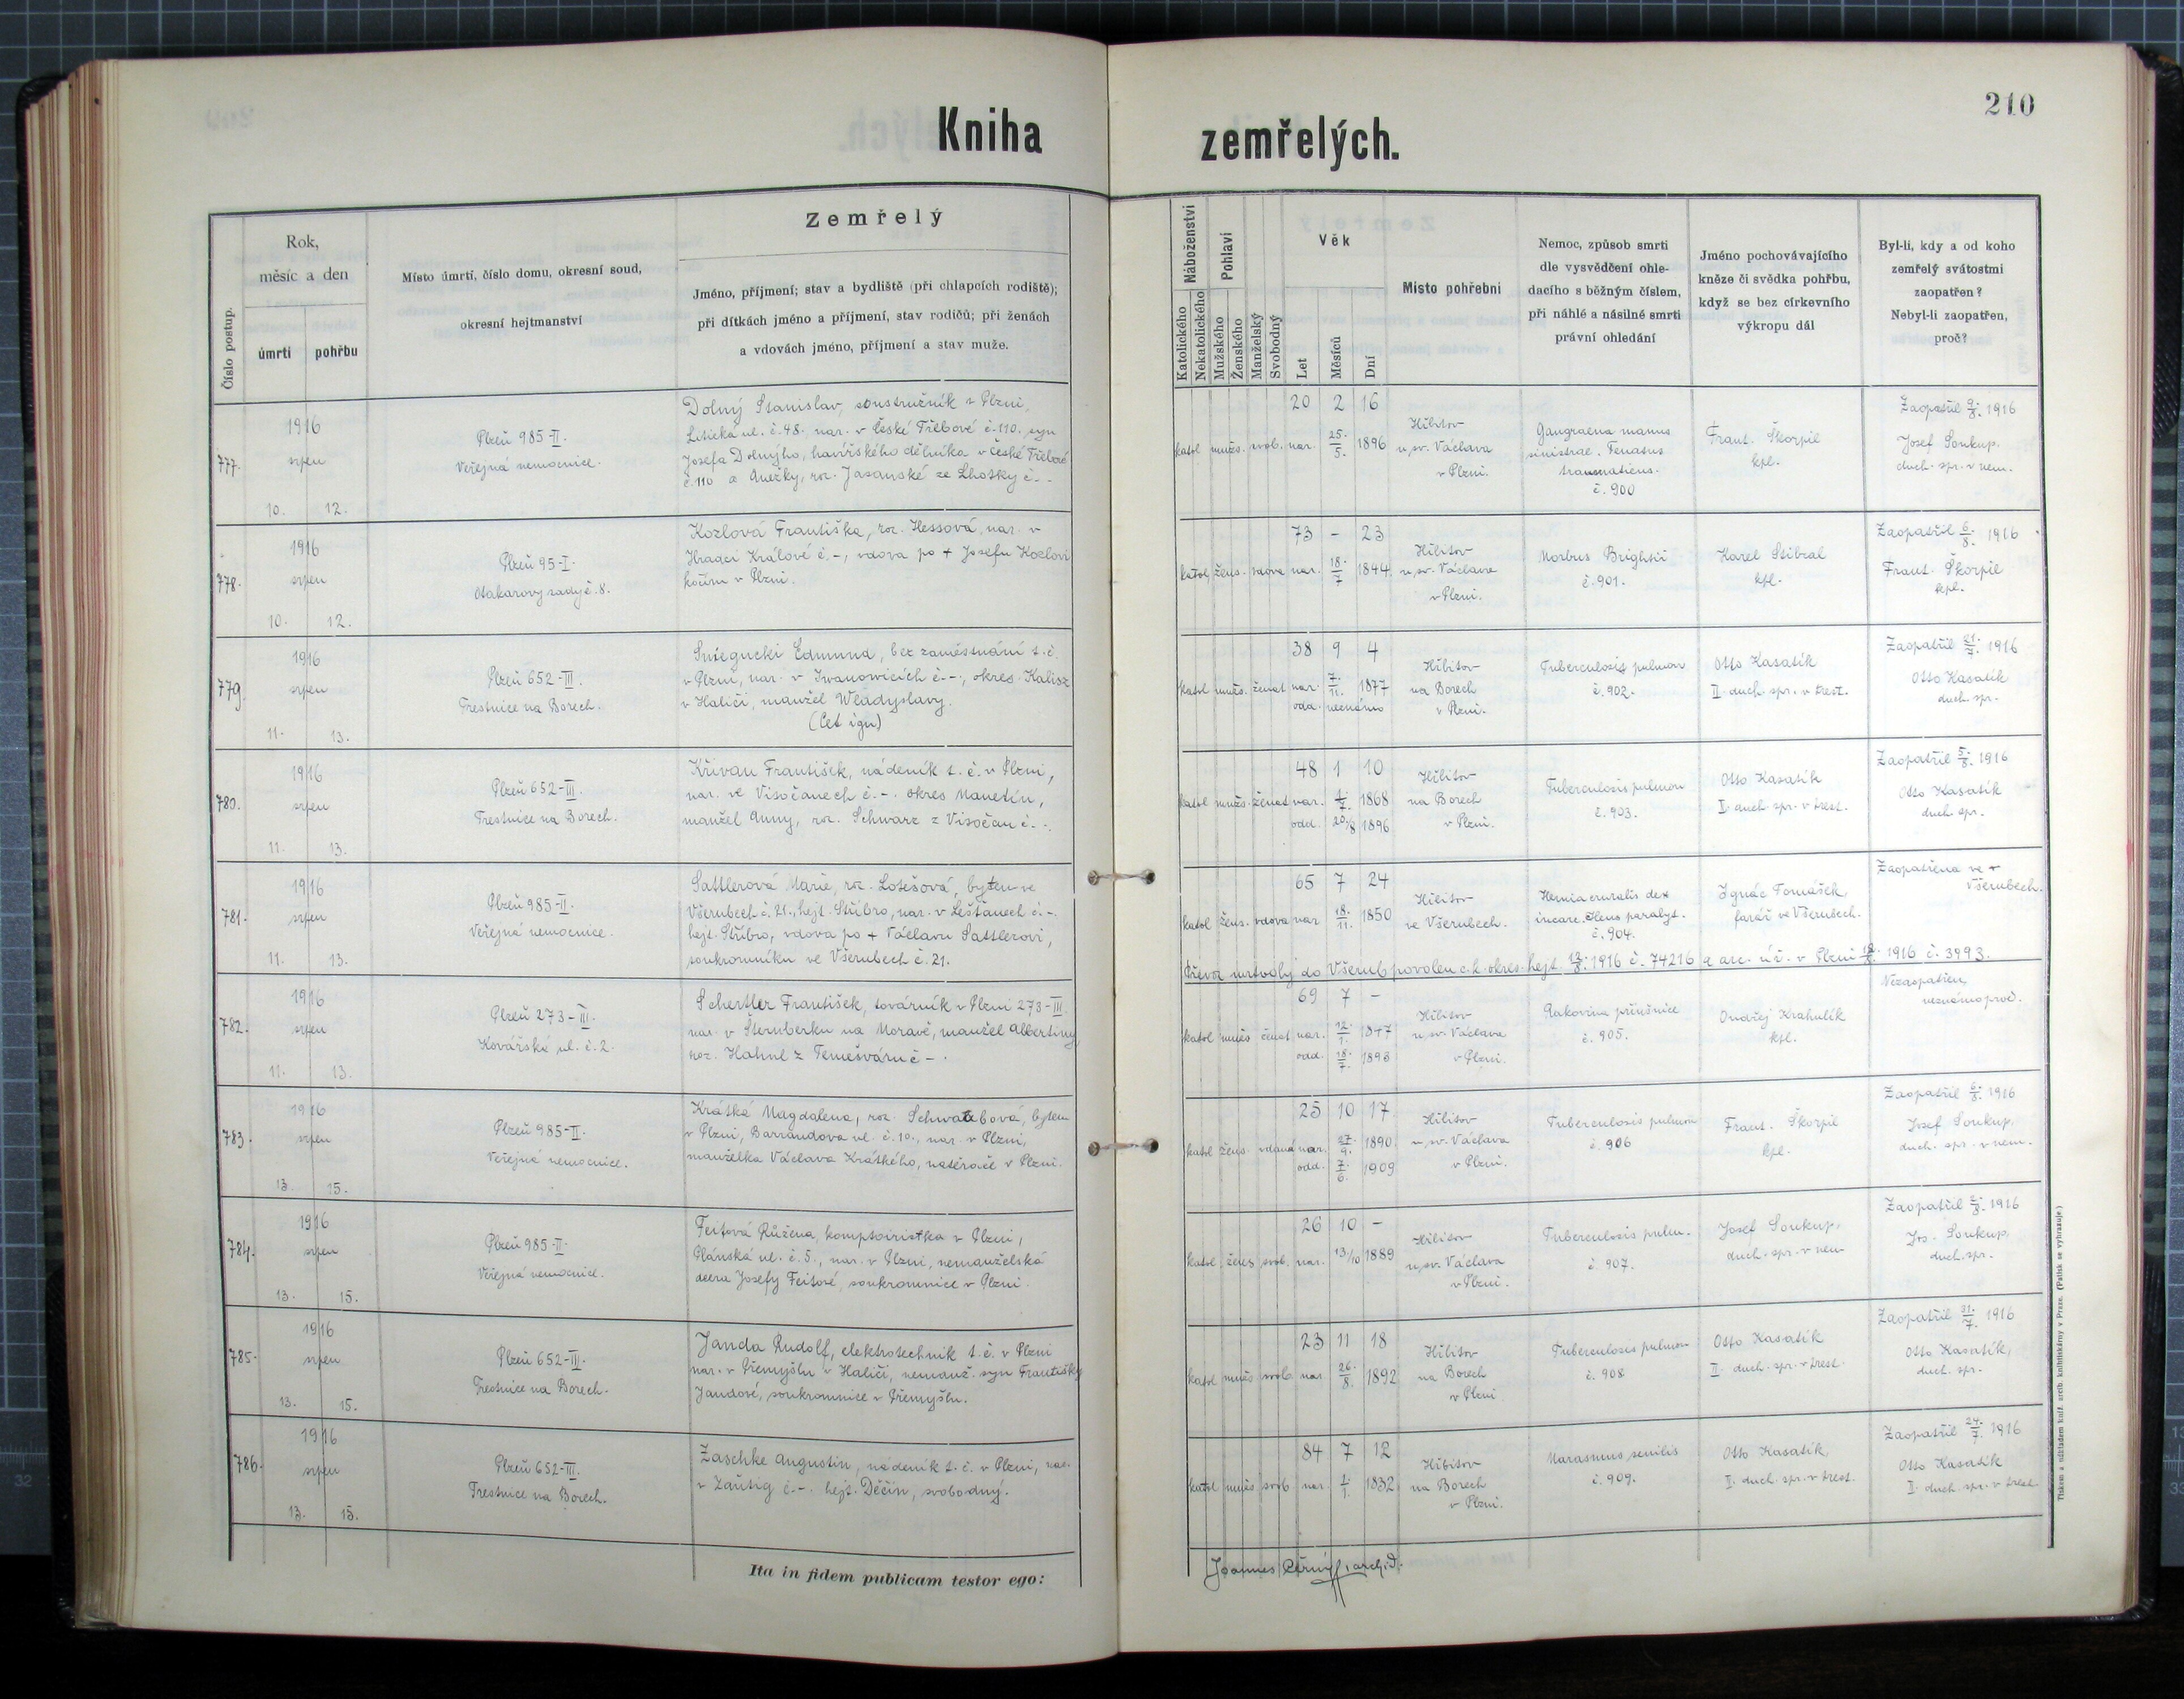 Kniha zemřelých.
210
Číslo postup.
Rok,
měsíc a den
úmrtí
pohřbu
Místo úmrtí, číslo domu, okresní soud,
okresní hejtmanství
Zemřelý
Jméno, příjmení; stav a bydliště (při chlapcích rodiště);
při dítkách jméno a příjmení, stav rodičů; při ženách
a vdovách jméno, příjmení a stav muže.
Náboženství
Katolického
Nekatolického
Pohlaví
Mužského
Ženského
Manželský
Svobodný
Věk
Let
Měsíců
Dní
Místo pohřební
Nemoc, způsob smrti
dle vysvědčení ohle-
dacího s běžným číslem,
při náhlé a násilné smrti
právní ohledání
Jméno pochovávajícího
kněze či svědka pohřbu,
když se bez církevního
výkropu dál
Byl-li, kdy a od koho
zemřelý svátostmi
zaopatřen?
Nebyl-li zaopatřen,
proč?
777.
1916
srpen
10. 12.
Plzeň 985-II.
Veřejná nemocnice.
Dolný Stanislav, soustružník v Plzni,
Litická ul. č. 48. nar. v České Třebové č. 110. syn
Josefa Dolnýho, havířského dělníka v České Třebové
č. 110 a Anežky, roz. Jasanské ze Lhotky č. -.
katol. mužs. svob. nar.
20 2 16
25./5. 1896
Hřbitov
u sv. Václava
v Plzni.
Gangraena manus
sinistrae. Tenatus
traumaticus.
č. 900
Frant. Škorpil
kpl.
Zaopatřil 9./8. 1916
Josef Soukup.
duch. spr. v nem.
778.
1916
srpen
10. 12.
Plzeň 95-I.
Otakarovy sady č. 8.
Kozlová Františka, roz. Hessová, nar. v
Hradci Králové č. -, vdova po + Josefu Kozlovi
kočím v Plzni.
katol. žens. vdova nar.
73 - 23
18./7 1844
Hřbitov
u sv. Václava
v Plzni.
Morbus Brightii
č. 901.
Karel Stibral
kpl.
Zaopatřil 6./8. 1916
Frant. Škorpil
kpl.
779.
1916
srpen
11. 13.
Plzeň 652-III.
Trestnice na Borech.
Sniegucki Edmund, bez zaměstnání t. č.
v Plzni, nar. v Iwanowicích č. -, okres Kalisz
v Haliči, manžel Wladyslavy.
katol. mužs. ženat nar.
38 9 4
7./11. 1877
odd. neznámo
Hřbitov
na Borech
v Plzni.
Tuberculosis pulmon
č. 902.
Otto Kasatík
II. duch. spr. v trest.
Zaopatřil 21./7. 1916
Otto Kasatík
duch. spr.
780.
1916
srpen
11. 13.
Plzeň 652-III.
Trestnice na Borech.
Křivan František, nádeník t. č. v Plzni,
nar. ve Visočanech č. -. okres Manetín,
manžel Anny, roz. Schwarz z Visočan č. -.
katol. mužs. ženat nar.
48 1 10
1./7. 1868
odd. 20/8 1896
Hřbitov
na Borech
v Plzni.
Tuberculosis pulmon
č. 903.
Otto Kasatík
II. duch. spr. v trest.
Zaopatřil 5./8. 1916
Otto Kasatík
duch. spr.
781.
1916
srpen
11. 13.
Plzeň 985-II.
Veřejná nemocnice.
Sattlerová Marie, roz. Lotešová, bytem ve
Všerubech č. 21., hejt. Stříbro, nar. v Lešťanech č. -.
hejt. Stříbro, vdova po + Václavu Sattlerovi,
soukromníku ve Všerubech č. 21.
katol. žens. vdova nar
65 7 24
18./11. 1850
Hřbitov
ve Všerubech.
Hernia cruralis dex
incarc. Ileus paralyt.
č. 904.
Ignác Tomášek,
farář ve Všerubech.
Zaopatřena ve +
Všerubech.
Převoz mrtvoly do Všerub povolen c. k. okres. hejt. 12./8. 1916 č. 74216 a arc. úř. v Plzni 12./8. 1916 č. 3993.
782.
1916
srpen
11. 13.
Plzeň 273-III.
Kovářská ul. č. 2.
Schertler František, továrník v Plzni 273-III
nar. v Šternberku na Moravě, manžel Albertiny
roz. Hahnl z Temešváru č -.
katol mužs ženat nar.
69 7 -
12./1. 1847
odd. 18./7. 1893
Hřbitov
u sv. Václava
v Plzni.
Rakovina příušnice
č. 905.
Ondřej Krahulík
kpl.
Nezaopatřen,
neznámo proč.
783.
1916
srpen
13. 15.
Plzeň 985-II.
Veřejná nemocnice.
Krátká Magdalena, roz. Schwabová, bytem
v Plzni, Barrandova ul. č. 10., nar. v Plzni,
manželka Václava Krátkého, natěrače v Plzni.
katol žens. vdaná nar.
25 10 17
27./9. 1890
odd. 7./6. 1909
Hřbitov
u sv. Václava
v Plzni.
Tuberculosis pulmon
č. 906
Frant. Škorpil
kpl.
Zaopatřil 6./8. 1916
Josef Soukup,
duch. spr. v nem.
784.
1916
srpen
13. 15.
Plzeň 985-II.
Veřejná nemocnice.
Feitová Růžena, komptoiristka v Plzni,
Plánská ul. č. 5., nar. v Plzni, nemanželská
dcera Josefy Feitové, soukromnice v Plzni.
katol. žens svob. nar.
26 10 -
13/10 1889
Hřbitov
u sv. Václava
v Plzni.
Tuberculosis pulm.
č. 907.
Josef Soukup,
duch. spr. v nem
Zaopatřil 1916
Jos. Soukup,
duch. spr.
785.
1916
srpen
13. 15.
Plzeň 652-III.
Trestnice na Borech.
Janda Rudolf, elektrotechnik t. č. v Plzni
nar. v Přemyšlu v Haliči, nemanž. syn Františky
Jandové, soukromnice v Přemyšlu.
katol mužs svob. nar
23 11 18
26./8. 1892
Hřbitov
na Borech
v Plzni
Tuberculosis pulmon
č. 908
Otto Kasatík
II. duch. spr. v trest.
Zaopatřil 31./7. 1916
Otto Kasatík,
duch. spr.
786.
1916
srpen
13. 15.
Plzeň 652-III.
Trestnice na Borech.
Zaschke Augustin, nádeník t. č. v Plzni, nar.
v Zautig č. -. hejt. Děčín, svobodný.
katol mužs svob nar.
84 7 12
1./1. 1832
Hřbitov
na Borech
v Plzni.
Marasmus senilis
č. 909.
Otto Kasatík,
II. duch. spr. v trest.
Zaopatřil 24./7. 1916
Otto Kasatík
II. duch. spr. v trest.
Ita in fidem publicam testor ego:
Joannes Černý, archid.